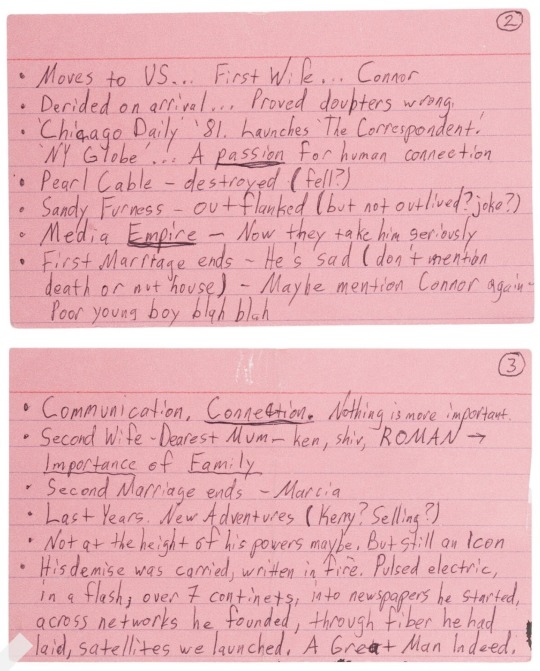 2
• Moves to US... First Wife... Connor
• Derided on arrival... Proved doubters wrong.
• 'Chicago Daily' '81. Launches 'The Correspondent.'
'NY Globe'... A passion for human connection
• Pearl Cable - destroyed (fell?)
• Sandy Furness - outflanked (but not outlived? joke?)
• Media Empire - Now they take him seriously
• First Marriage ends - He's sad (don't mention
death or nut house) - Maybe mention Connor again -
Poor young boy blah blah
3
• Communication, Connection. Nothing is more important.
• Second Wife - Dearest Mum - ken, shiv, ROMAN →
Importance of Family
• Second Marriage ends - Marcia
• Last Years. New Adventures (Kerry? Selling?)
• Not at the height of his powers maybe. But still an Icon
• His demise was carried, written in fire. Pulsed electric,
in a flash, over 7 continets, into newspapers he started,
across networks he founded, through fiber he had
laid, satellites we launched. A Great Man Indeed.